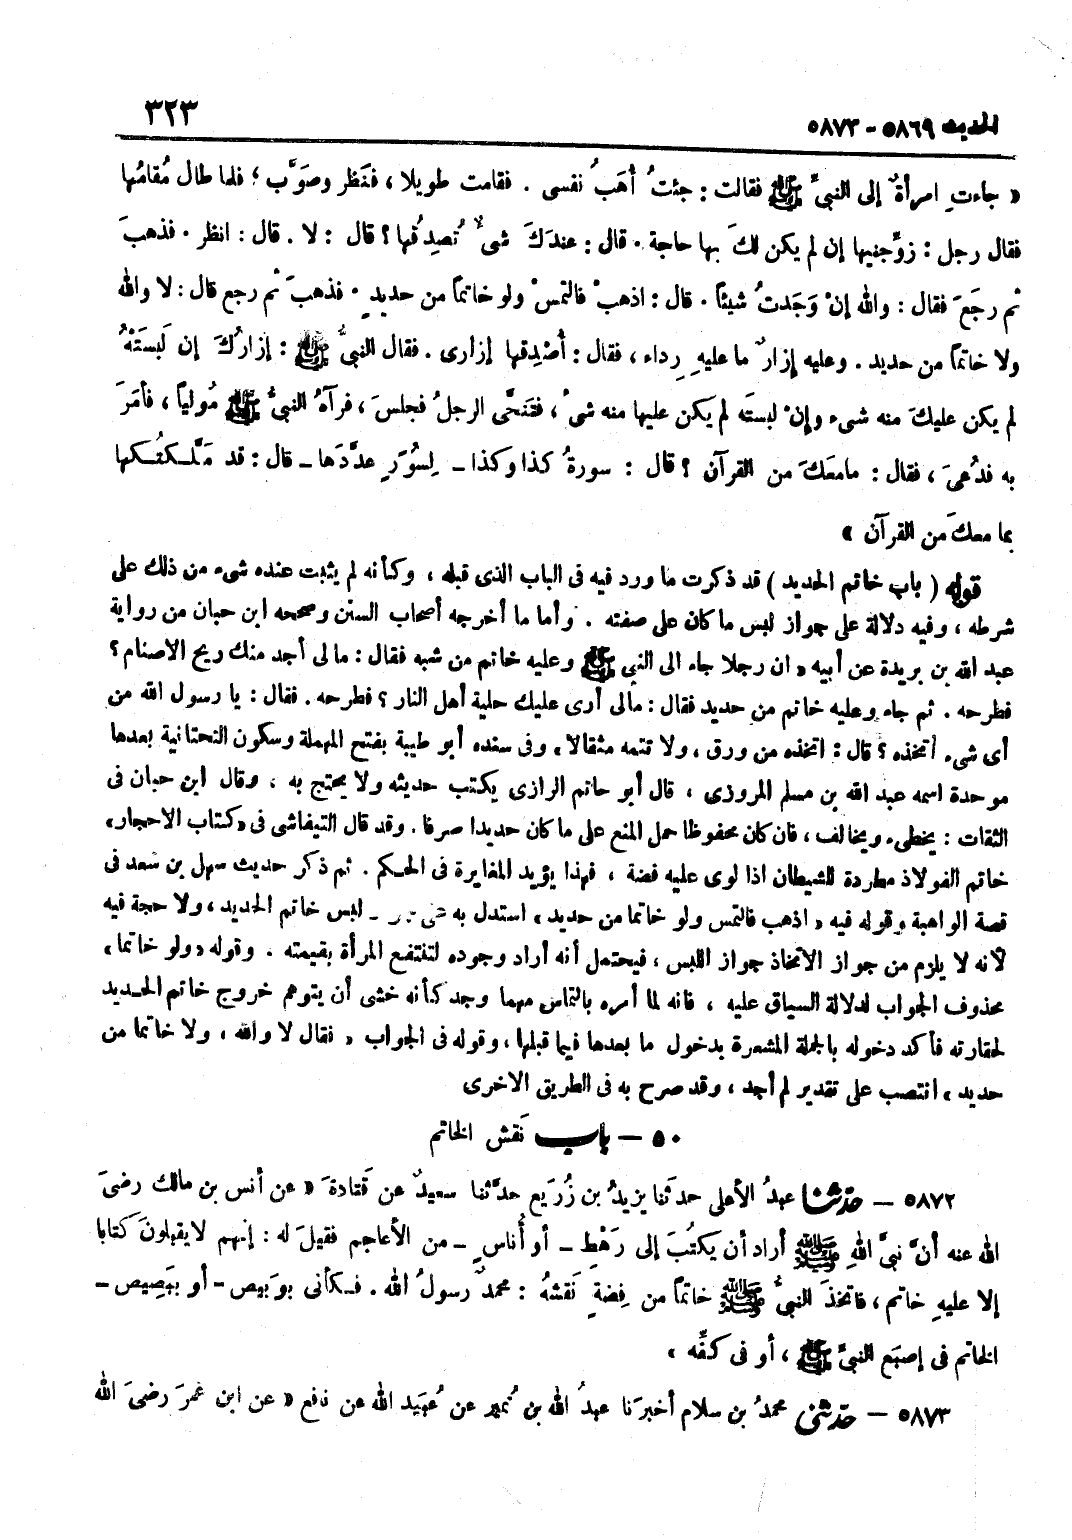 الحديث ٥٨٦٩ - ٥٨٧٣ ٣٢٣
« جاءتِ امرأةٌ إلى النبيِّ ﷺ فقالت : جئتُ أهَبُ نفسى . فقامت طويلا ، فنَظر وصَوَّب ؛ فلما طال مُقامُها
فقال رجل : زوِّجنيها إن لم يكن لكَ بها حاجة . قال : عندَكَ شىءٌ تُصدِقُها ؟ قال : لا . قال : انظر . فذهبَ
ثم رجَعَ فقال : والله إنْ وَجَدتُ شيئاً . قال : اذهبْ فالتمسْ ولو خاتماً من حديدٍ . فذهبَ ثم رجع قال : لا والله
ولا خاتماً من حديد . وعليه إزارٌ ما عليهِ رِداء ، فقال : أُصْدِقها إزارى . فقال النبىُّ ﷺ : إزارُكَ إن لَبسَتْهُ
لم يكن عليكَ منه شىء وإنْ لبستَه لم يكن عليها منه شىْ ، فتنحَّى الرجلُ فجلسَ ، فرآهُ النبىُّ ﷺ مُولياً ، فأمَرَ
به فدُعىَ ، فقال : مامعَكَ من القرآن ؟ قال : سورةُ كذا وكذا - لِسُوَرٍ عدَّدَها - قال : قد مَلَّـكتُـكها
بما معكَ من القرآن »
قوله ( باب خاتم الحديد ) قد ذكرت ما ورد فيه فى الباب الذى قبله ، وكأنه لم يثبت عنده شىء من ذلك على
شرطه ، وفيه دلالة على جواز لبس ما كان على صفته . وأما ما أخرجه أصحاب السنن وصححه ابن حبان من رواية
عبد الله بن بريدة عن أبيه « ان رجلا جاء الى النبى ﷺ وعليه خاتم من شبه فقال : ما لى أجد منك ريح الاصنام ؟
فطرحه . ثم جاء وعليه خاتم من حديد فقال : مالى أرى عليك حلية أهل النار ؟ فطرحه . فقال : يا رسول الله من
أى شىء أتخذه ؟ قال : اتخذه من ورق ، ولا تتمه مثقالا » وفى سنده أبو طيبة بفتح المهملة وسكون التحتانية بعدها
موحدة اسمه عبد الله بن مسلم المروزى ، قال أبو حاتم الرازى يكتب حديثه ولا يحتج به ، وقال ابن حبان فى
الثقات : يخطىء ويخالف ، فان كان محفوظا حمل المنع على ما كان حديدا صرفا . وقد قال التيفاشى فى « كتاب الاحجار »
خاتم الفولاذ مطردة للشيطان اذا لوى عليه فضة ، فهذا يؤيد المغايرة فى الحـكم . ثم ذكر حديث سهل بن سعد فى
قصة الواهبة وقوله فيه « اذهب فالتمس ولو خاتما من حديد » استدل به لبس خاتم الحديد ، ولا حجة فيه
لأنه لا يلزم من جواز الاتخاذ جواز اللبس ، فيحتمل أنه أراد وجوده لتنتفع المرأة بقيمته . وقوله « ولو خاتما »
محذوف الجواب لدلالة السياق عليه ، فانه لما أمره بالتماس مهما وجد كأنه خشى أن يتوهم خروج خاتم الحـديد
لحقارته فأكد دخوله بالجملة المشعرة بدخول ما بعدها فيما قبلها ، وقوله فى الجواب « فقال لا والله ، ولا خاتما من
حديد » انتصب على تقدير لم أجد ، وقد صرح به فى الطريق الاخرى
٥٠ - باب نَقش الخاتم
٥٨٧٢ - حدّثنا عبدُ الأعلى حدثَنا يزيدُ بن زُرَيع حدَّثنا سعيدٌ عن قَتادةَ « عن أنس بن مالك رضىَ
الله عنه أنَّ نبىَّ اللهِ ﷺ أراد أن يكتُبَ إلى رَهْطٍ - أو أُناسٍ - من الأعاجم فقيلَ له : إنهم لا يقبلونَ كتابا
إلا عليهِ خاتم ، فاتخذَ النبىُّ ﷺ خاتماً من فِضةٍ نَقشهُ : محمدٌ رسولُ الله . فـكأنى بوَبيص - أو ببَصِيص -
الخاتم فى إصبَع النبىِّ ﷺ ، أو فى كفِّه »
٥٨٧٣ - حدّثنى محمدُ بن سلام أخبرَنا عبدُ الله بن نُمير عن عُبَيد الله عن نافع « عن ابن عمرَ رضىَ الله